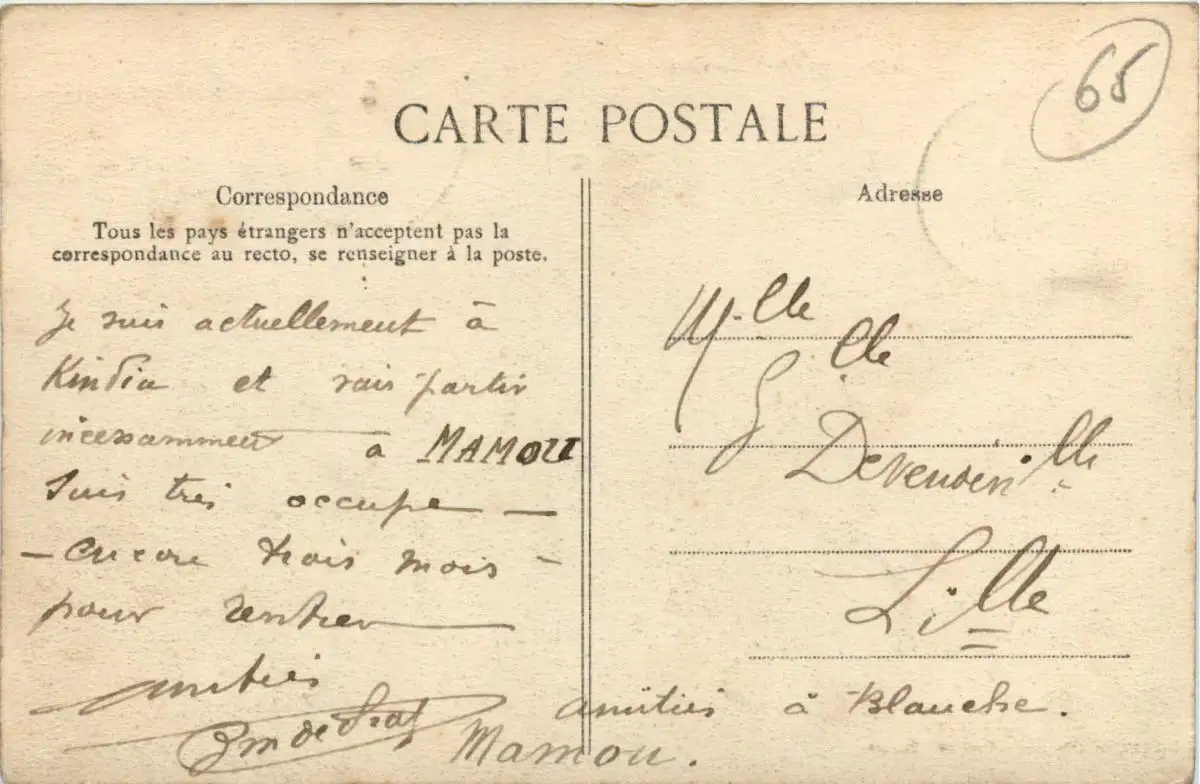 65
CARTE POSTALE
Correspondance
Tous les pays étrangers n'acceptent pas la
correspondance au recto, se renseigner à la poste.
Je suis actuellement à
Kindia et vais partir
incessamment à MAMOU
Suis très occupé —
— encore trois mois -
pour rentrer —
amitiés
Adresse
Lille
amitiés à Blanche.
Mamou.